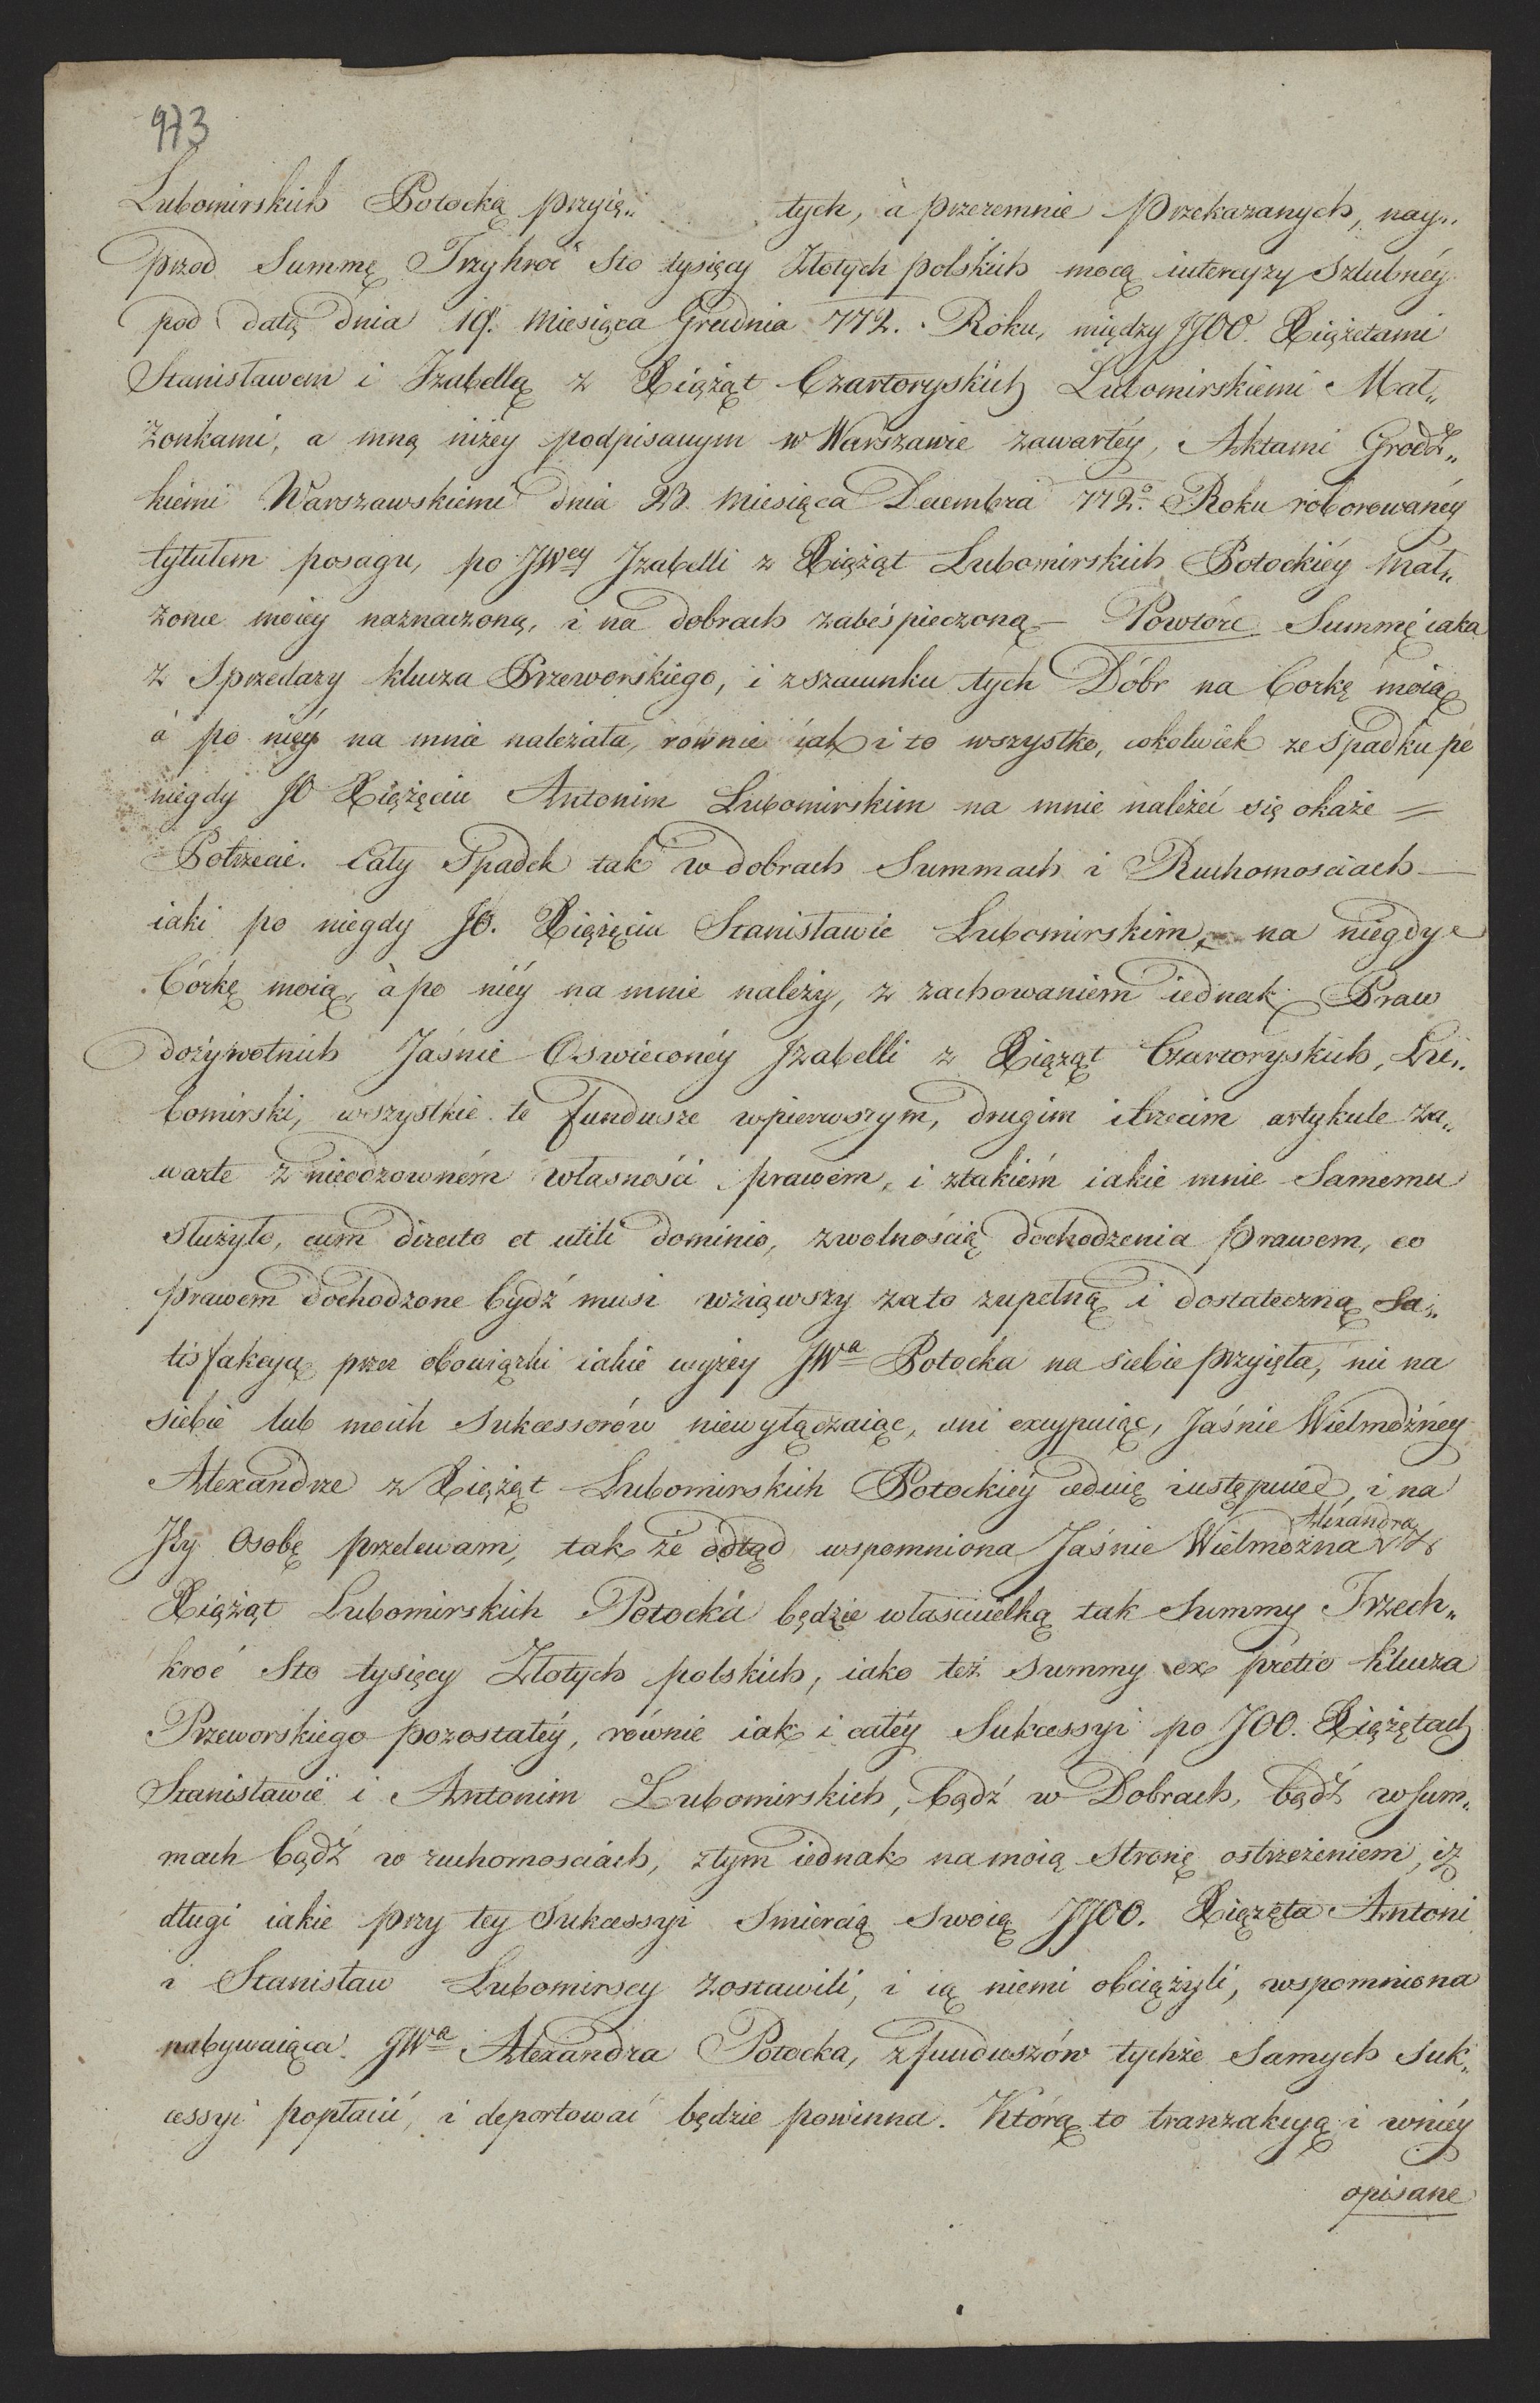 973
Lubomirskich Potocką przyię„ tych, à przezemnie przekazanych, nay„
przod Summę Trzykroć Sto tysięcy Złotych polskich mocą intercyzy Szlubnéy
pod datą dnia 19. Miesiąca Grudnia 772. Roku, między JJOO. Xiążetami
Stanisławem i Izabellą z Xiążąt Czartoryskich Lubomirskiemi Mał„
żonkami, a mną niżey podpisanym w Warszawie zawartéy, Aktami Grodz„
kiemi Warszawskiemi dnia 23. Miesiąca Decembra 772º Roku roborowanéy
tytułem posagu, po JWey Izabelli z Xiążąt Lubomirskich Potockiéy Mał„
żonce moiey naznaczoną, i na dobrach zabeśpieczoną – Powtóre Summę iaka
z Sprzedaży klucza Przeworskiego, i z szacunku tych Dóbr na Corkę moią
à po niéy na mnie należała, równie iak i to wszystko, cokolwiek ze Spadku po
niegdy JO Xiążęciu Antonim Lubomirskim na mnie należeć się okaże =
Potrzecie. Cały Spadek tak w dobrach Summach i Ruchomosciach —
iaki po niegdy JO. Xiążęciu Stanisławie Lubomirskim, na niegdy
Córkę moią, à po niéy na mnie należy, z zachowaniem iednak Praw
dożywotnich Jaśnie Oswieconéy Izabelli z Xiążąt Czartoryskich, Lu„
bomirski, wszystkie te fundusze w pierwszym, drugim i trzecim artykule za„
warte z nieodzowném własności prawem, i z takiém iakie mnie Samemu
służyło, cum directo et utili dominio, z wolnością dochodzenia prawem, co
prawem dochodzone bydź musi wziąwszy za to zupełną i dostateczną Sa„
tisfakcyą przez obowiązki iakie wyżey JWa Potocka na siebie przyięła, nic na
siebie lub moich Sukcessorów niewyłączaiąc, ani excypuiąc, Jaśnie Wielmożnéy
Alexandrze z Xiążąt Lubomirskich Potockiéy ceduię i ustępuię, i na
Jéy Osobę przelewam, tak że odtąd wspomniona Jaśnie Wielmożna Alexandra z
Xiążąt Lubomirskich Potocka będzie właścicielką tak Summy Trzech„
kroć Sto tysięcy Złotych polskich, iako też Summy ex pretio klucza
Przeworskiego pozostałéy, równie iak i całéy Sukcessyi po JOO. Xiążętach
Stanisławie i Antonim Lubomirskich, bądź w Dobrach, bądź w Sum„
mach bądź w ruchomosciach, z tym iednak na moią Stronę ostrzeżeniem, iż
długi iakie przy tey Sukcessyi Smiercią Swoią JJOO. Xiążęta Antoni
i Stanisław Lubomirscy zostawili, i ią niemi obciążyli, wspomniona
nabywaiąca JWa Alexandra Potocka, z funduszów tychże Samych Suk„
cessyi popłacić, i deportować będzie powinna. Którą to tranzakcyą i w niéy
opisane